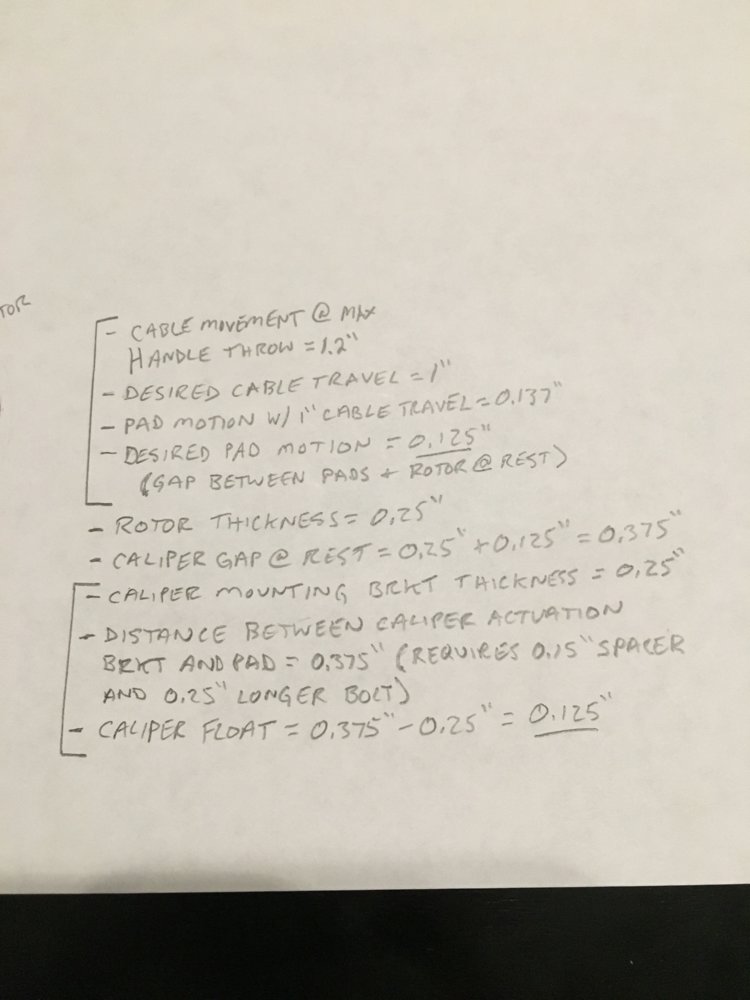 TOR
- CABLE MOVEMENT @ MAX
HANDLE THROW = 1.2"
- DESIRED CABLE TRAVEL = 1"
- PAD MOTION W/ 1" CABLE TRAVEL = 0.137"
- DESIRED PAD MOTION = 0.125"
(GAP BETWEEN PADS + ROTOR @ REST)
- ROTOR THICKNESS = 0.25"
- CALIPER GAP @ REST = 0.25" + 0.125" = 0.375"
- CALIPER MOUNTING BRKT THICKNESS = 0.25"
- DISTANCE BETWEEN CALIPER ACTUATION
BRKT AND PAD = 0.375" (REQUIRES 0.15" SPACER
AND 0.25" LONGER BOLT)
- CALIPER FLOAT = 0.375" - 0.25" = 0.125"